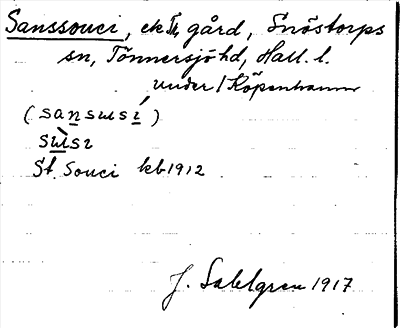 Sanssouci, ek Ⅰ, gård, Snöstorps
sn, Tönnersjö hd, Hall. l.
under 1 Köpenhamn
(sansusí)
sùsı
St. Souci kb 1912
J. Sahlgren 1917